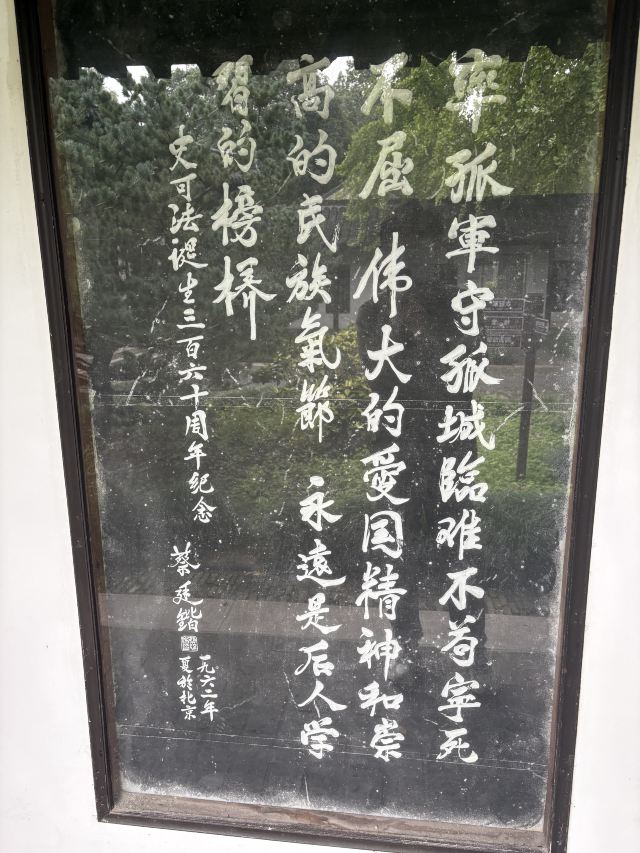 率孤軍守孤城臨难不苟宁死
不屈 伟大的愛囯精神和崇
高的民族氣節 永遠是后人学
習的榜樣
史可法诞生三百六十周年纪念
蔡廷鍇
一九六二年
夏於北京